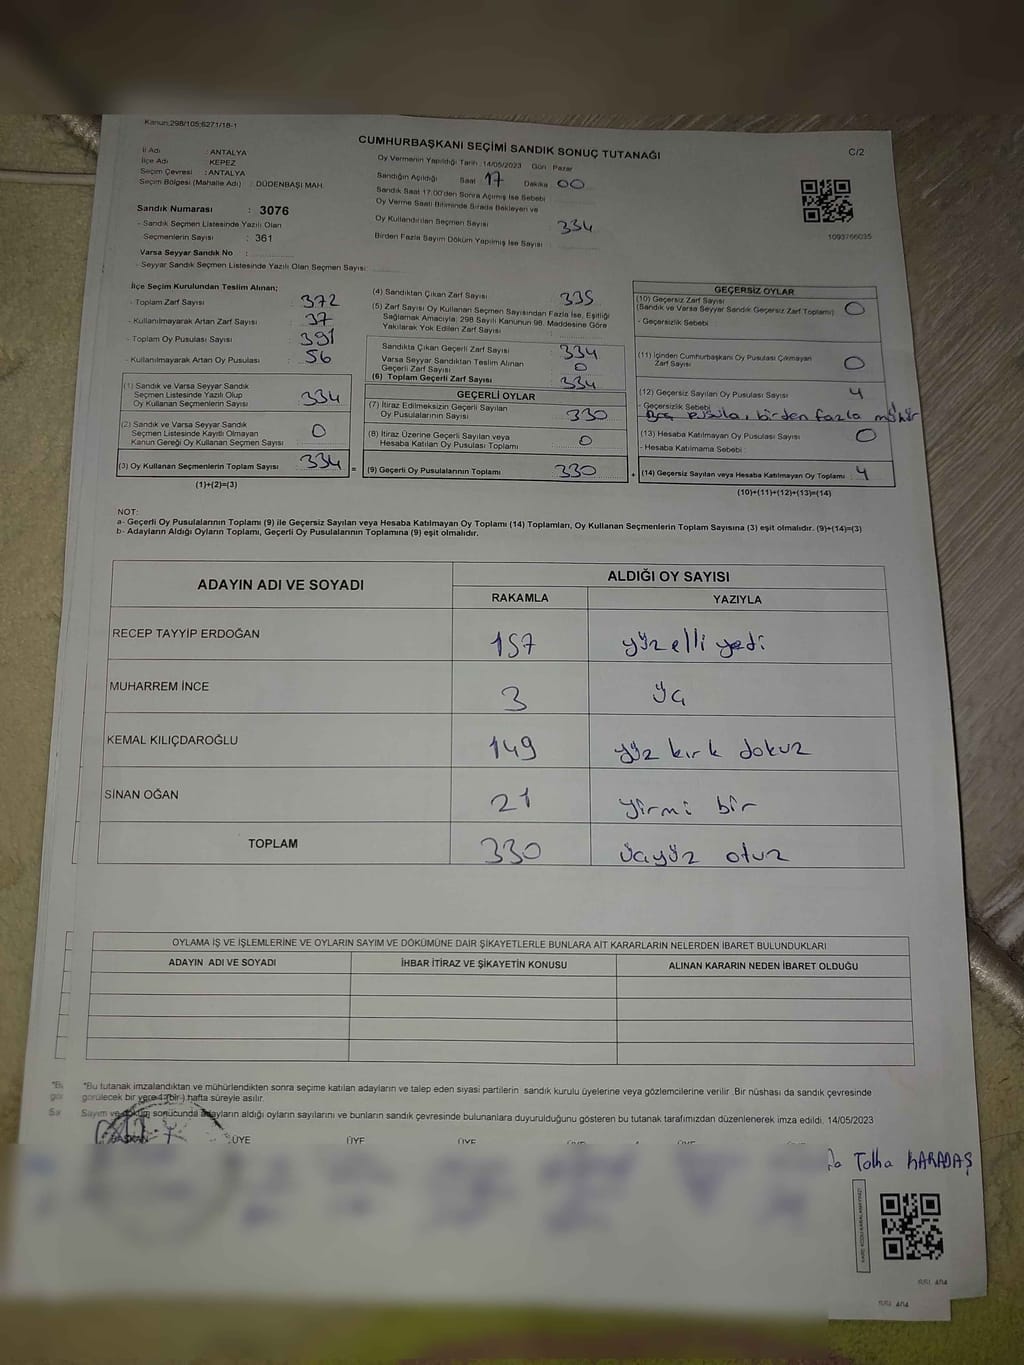 Kanun:298/105;6271/18-1
CUMHURBAŞKANI SEÇİMİ SANDIK SONUÇ TUTANAĞI
C/2
İl Adı : ANTALYA
İlçe Adı : KEPEZ
Seçim Çevresi : ANTALYA
Seçim Bölgesi (Mahalle Adı) : DÜDENBAŞI MAH
Sandık Numarası : 3076
- Sandık Seçmen Listesinde Yazılı Olan
Seçmenlerin Sayısı : 361
Varsa Seyyar Sandık No :
- Seyyar Sandık Seçmen Listesinde Yazılı Olan Seçmen Sayısı:
Oy Vermenin Yapıldığı Tarih :14/05/2023 Gün : Pazar
Sandığın Açıldığı Saat :17 Dakika :00
Sandık Saat 17:00'den Sonra Açılmış İse Sebebi :
Oy Verme Saati Bitiminde Sırada Bekleyen ve
Oy Kullandırılan Seçmen Sayısı : 334
Birden Fazla Sayım Döküm Yapılmış İse Sayısı :
1093766035
İlçe Seçim Kurulundan Teslim Alınan;
- Toplam Zarf Sayısı : 372
- Kullanılmayarak Artan Zarf Sayısı : 37
- Toplam Oy Pusulası Sayısı : 391
- Kullanılmayarak Artan Oy Pusulası : 56
(1) Sandık ve Varsa Seyyar Sandık
Seçmen Listesinde Yazılı Olup
Oy Kullanan Seçmenlerin Sayısı : 334
(2) Sandık ve Varsa Seyyar Sandık
Seçmen Listesinde Kayıtlı Olmayan
Kanun Gereği Oy Kullanan Seçmen Sayısı : 0
(3) Oy Kullanan Seçmenlerin Toplam Sayısı : 334
(1)+(2)=(3)
(4) Sandıktan Çıkan Zarf Sayısı : 335
(5) Zarf Sayısı Oy Kullanan Seçmen Sayısından Fazla İse, Eşitliği
Sağlamak Amacıyla; 298 Sayılı Kanunun 98. Maddesine Göre
Yakılarak Yok Edilen Zarf Sayısı :
Sandıkta Çıkan Geçerli Zarf Sayısı : 334
Varsa Seyyar Sandıktan Teslim Alınan
Geçerli Zarf Sayısı : 0
(6) Toplam Geçerli Zarf Sayısı : 334
GEÇERLİ OYLAR
(7) İtiraz Edilmeksizin Geçerli Sayılan
Oy Pusulalarının Sayısı : 330
(8) İtiraz Üzerine Geçerli Sayılan veya
Hesaba Katılan Oy Pusulası Toplamı : 0
= (9) Geçerli Oy Pusulalarının Toplamı : 330
GEÇERSİZ OYLAR
(10) Geçersiz Zarf Sayısı
(Sandık ve Varsa Seyyar Sandık Geçersiz Zarf Toplamı) : 0
- Geçersizlik Sebebi :
(11) İçinden Cumhurbaşkanı Oy Pusulası Çıkmayan
Zarf Sayısı : 0
(12) Geçersiz Sayılan Oy Pusulası Sayısı : 4
- Geçersizlik Sebebi
pusula, birden fazla mühür
(13) Hesaba Katılmayan Oy Pusulası Sayısı : 0
- Hesaba Katılmama Sebebi :
+ (14) Geçersiz Sayılan veya Hesaba Katılmayan Oy Toplamı : 4
(10)+(11)+(12)+(13)=(14)
NOT:
a- Geçerli Oy Pusulalarının Toplamı (9) ile Geçersiz Sayılan veya Hesaba Katılmayan Oy Toplamı (14) Toplamları, Oy Kullanan Seçmenlerin Toplam Sayısına (3) eşit olmalıdır. (9)+(14)=(3)
b- Adayların Aldığı Oyların Toplamı, Geçerli Oy Pusulalarının Toplamına (9) eşit olmalıdır.
ADAYIN ADI VE SOYADI ALDIĞI OY SAYISI
RAKAMLA YAZIYLA
RECEP TAYYİP ERDOĞAN 157 yüz elli yedi
MUHARREM İNCE 3 üç
KEMAL KILIÇDAROĞLU 149 yüz kırk dokuz
SİNAN OĞAN 21 yirmi bir
TOPLAM 330 üçyüz otuz
OYLAMA İŞ VE İŞLEMLERİNE VE OYLARIN SAYIM VE DÖKÜMÜNE DAİR ŞİKAYETLERLE BUNLARA AİT KARARLARIN NELERDEN İBARET BULUNDUKLARI
ADAYIN ADI VE SOYADI İHBAR İTİRAZ VE ŞİKAYETİN KONUSU ALINAN KARARIN NEDEN İBARET OLDUĞU
*Bu tutanak imzalandıktan ve mühürlendikten sonra seçime katılan adayların ve talep eden siyasi partilerin sandık kurulu üyelerine veya gözlemcilerine verilir. Bir nüshası da sandık çevresinde
görülecek bir yere 1 (bir) hafta süreyle asılır.
Sayım ve döküm sonucunda adayların aldığı oyların sayılarını ve bunların sandık çevresinde bulunanlara duyurulduğunu gösteren bu tutanak tarafımızdan düzenlenerek imza edildi. 14/05/2023
BAŞKAN ÜYE ÜYE ÜYE ÜYE ÜYE
Talha KARADAŞ